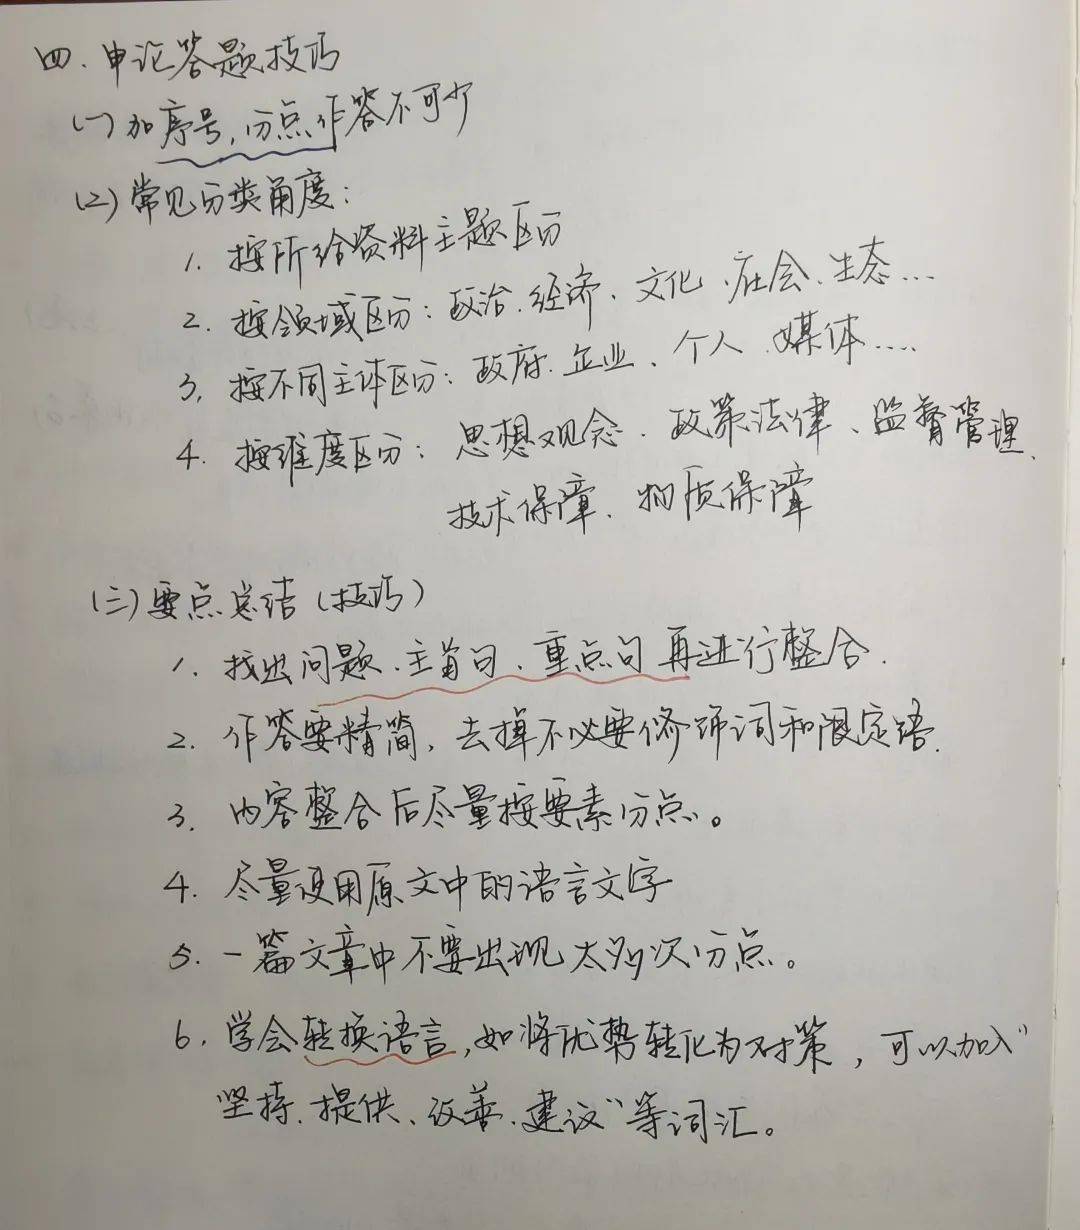 四、申论答题技巧
(一)加序号,分点作答不可少
(二)常见分类角度:
1. 按所给资料主题区分
2. 按领域区分:政治、经济、文化、社会、生态...
3. 按不同主体区分:政府、企业、个人、媒体....
4. 按维度区分:思想观念、政策法律、监督管理、
技术保障、物质保障
(三)要点总结(技巧)
1. 找出问题、主旨句、重点句再进行整合.
2. 作答要精简,去掉不必要修饰词和限定语.
3. 内容整合后尽量按要素分点。
4. 尽量使用原文中的语言文字
5. 一篇文章中不要出现太多次分点。
6. 学会转换语言,如将优势转化为对策,可以加入“
坚持、提供、改善、建议”等词汇。